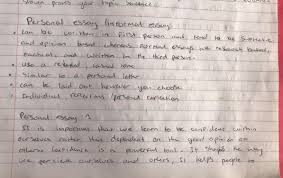 proves your topic sentence.
Personal essay / informal essay
• can be written in first person and tend to be subjective
and opinion based whereas normal essays are research based,
factual and written in the third person.
• use a relaxed casual tone
• similar to a personal letter
• can be laid out however you choose
• Individual reactions / personal
Personal essay 1
It is important that we learn to be confident within
ourselves rather than dependent on the good opinion of
others. Confidence is a powerful tool. It shapes the way
we perceive ourselves and others. It helps people to